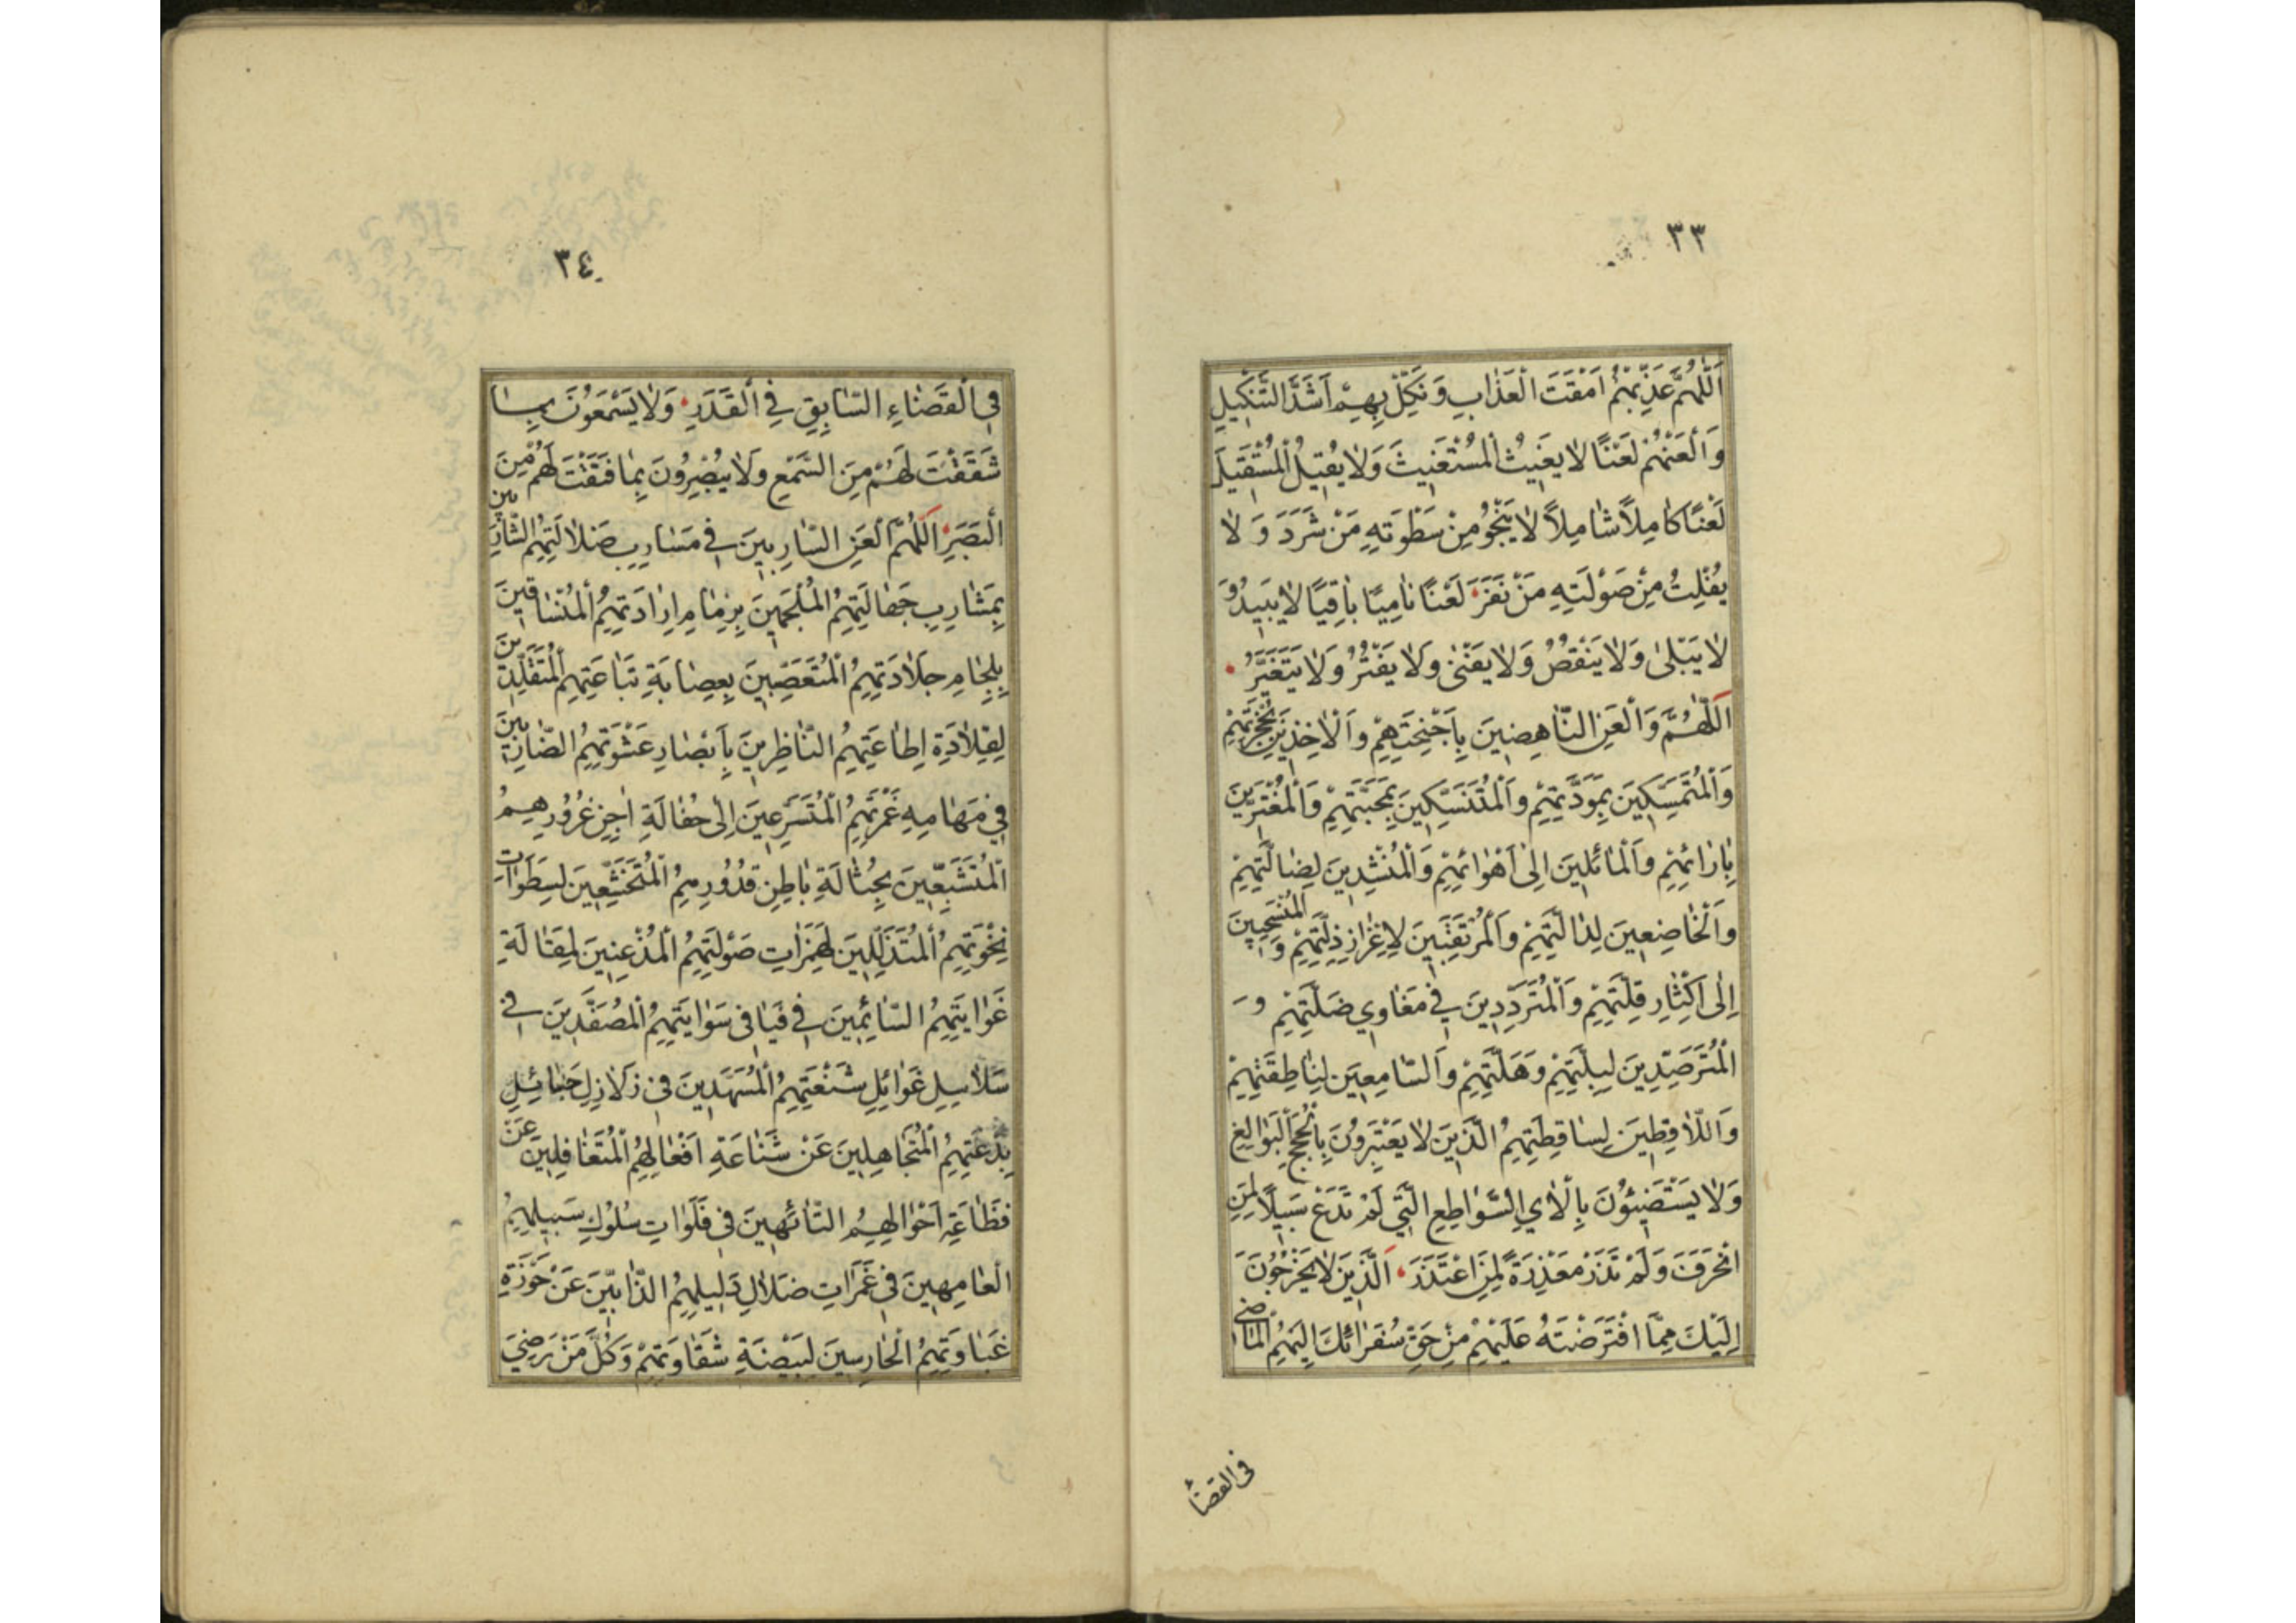 ٣٣
اَللّٰهُمَّ عَذِّبْهُمْ اَمْقَتَ الْعَذٰابِ وَنَكِّلْ بِهِمْ اَشَدَّ التَّنْكِيلِ
وَالْعَنْهُمْ لَعْنًا لٰا يُغِيثُ الْمُسْتَغِيثَ وَلٰا يُقِيلُ الْمُسْتَقِيلَ
لَعْنًا كٰامِلاً شٰامِلاً لٰا يَنْجُو مِنْ سَطْوَتِهِ مَنْ شَرَدَ وَ لٰا
يُفْلِتُ مِنْ صَوْلَتِهِ مَنْ نَفَرَ لَعْنًا نٰامِيًا بٰاقِيًا لٰا يَبِيدُ وَ
لٰا يَبْلىٰ وَلٰا يَنْقُصُ وَلٰا يَفْنىٰ وَلٰا يَفْتُرُ وَلٰا يَتَغَيَّرُ
اَللّٰهُمَّ وَالْعَنِ النّٰاهِضِينَ بِاَجْنِحَتِهِمْ وَالْاٰخِذِينَ بِحُجْزَتِهِمْ
وَالْمُتَمَسِّكِينَ بِمَوَدَّتِهِمْ وَالْمُتَنَسِّكِينَ بِمَحَبَّتِهِمْ وَالْمُغْتَرِّينَ
بِاٰرٰائِهِمْ وَالْمٰائِلِينَ اِلىٰ اَهْوٰائِهِمْ وَالْمُنْشِدِينَ لِضٰالَّتِهِمْ
وَالْخٰاضِعِينَ لِذٰالَّتِهِمْ وَالْمُرْتَقِبِينَ لِاِعْزٰازِ ذِلَّتِهِمْ وَ
اِلىٰ اِكْثٰارِ قِلَّتِهِمْ وَالْمُتَرَدِّدِينَ فِي مَغٰاوِي ضَلَّتِهِمْ وَ
الْمُتَرَصِّدِينَ لِبِلَّتِهِمْ وَهَلَّتِهِمْ وَالسّٰامِعِينَ لِنٰاطِقَتِهِمْ
وَاللّٰاقِطِينَ لِسٰاقِطَتِهِمُ الَّذِينَ لٰا يَعْتَبِرُونَ بِالْحُجَجِ الْبَوٰالِغِ
وَلٰا يَسْتَضِيئُونَ بِالْاٰيِ السَّوٰاطِعِ الَّتِي لَمْ تَدَعْ سَبِيلًا لِمَنِ
انْحَرَفَ وَلَمْ تَذَرْ مَعْذِرَةً لِمَنِ اعْتَذَرَ اَلَّذِينَ لٰا يَخْرُجُونَ
اِلَيْكَ مِمَّا افْتَرَضْتَهُ عَلَيْهِمْ مِنْ حَقِّ سُفَرٰائِكَ اِلَيْهِمُ الْمٰاضِي
فى القضاء
٣٤
فِي الْقَضٰاءِ السّٰابِقِ فِي الْقَدَرِ وَلٰا يَسْمَعُونَ بِمٰا
شَقَقْتَ لَهُمْ مِنَ السَّمْعِ وَلٰا يُبْصِرُونَ بِمٰا فَتَقْتَ لَهُمْ مِنَ
الْبَصَرِ اَللّٰهُمَّ الْعَنِ السّٰارِبِينَ فِي مَسٰارِبِ ضَلٰالَتِهِمُ الشّٰارِبِينَ
بِمَشٰارِبِ جَهٰالَتِهِمُ الْمُلْجَمِينَ بِزِمٰامِ اِرٰادَتِهِمُ الْمُنْسٰاقِينَ
بِلِجٰامِ جَلٰادَتِهِمُ الْمُتَعَصِّبِينَ بِعِصٰابَةِ تَبٰاعَتِهِمُ الْمُتَقَلِّدِينَ
لِقِلٰادَةِ اِطٰاعَتِهِمُ النّٰاظِرِينَ بِاَبْصٰارِ عَشْوَتِهِمُ الضّٰارِبِينَ
فِي مَهٰامِهِ غَمْرَتِهِمُ الْمُتَسَرِّعِينَ اِلىٰ حُفٰالَةِ اٰجِنِ غُرُورِهِمُ
الْمُتَشَبِّعِينَ بِحُثٰالَةِ بٰاطِنِ قُدُورِهِمُ الْمُتَخَشِّعِينَ لِسَطَوٰاتِ
نَخْوَتِهِمُ الْمُتَذَلِّلِينَ لِهَمَزٰاتِ صَوْلَتِهِمُ الْمُذْعِنِينَ لِمَقٰالَةِ
غَوٰايَتِهِمُ السّٰائِمِينَ فِي فَيٰافِى سَوٰايَتِهِمُ الْمُصَفَّدِينَ فِي
سَلٰاسِلِ غَوٰائِلِ شَنْعَتِهِمُ الْمُسَهَّدِينَ فِي زَلٰازِلِ حَبٰائِلِ
بِدْعَتِهِمُ الْمُتَجٰاهِلِينَ عَنْ شَنٰاعَةِ اَفْعٰالِهِمُ الْمُتَغٰافِلِينَ عَنْ
فَظٰاعَةِ اَحْوٰالِهِمُ التّٰائِهِينَ فِي فَلَوٰاتِ سُلُوكِ سَبِيلِهِمُ
الْعٰامِهِينَ فِي غَمَرٰاتِ ضَلٰالِ دَلِيلِهِمُ الذّٰابِّينَ عَنْ حَوْزَةِ
غَبٰاوَتِهِمُ الْحٰارِسِينَ لِبَيْضَةِ شَقٰاوَتِهِمْ وَكُلَّ مَنْ رَضِيَ